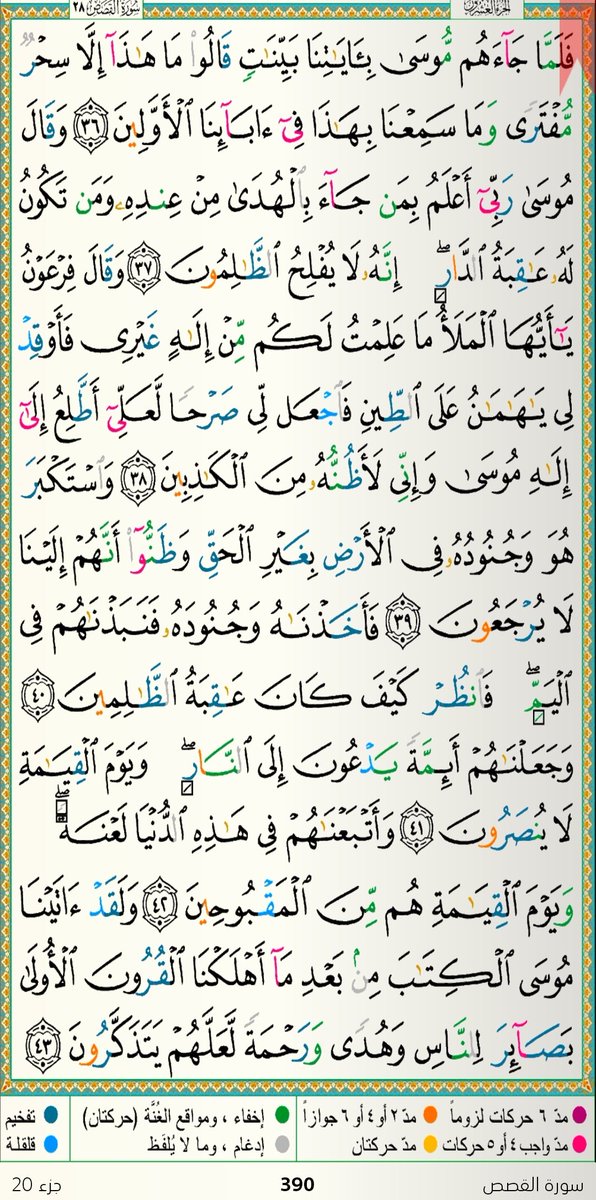 سورة القصص ٢٨ الجزء العشرون
فَلَمَّا جَآءَهُم مُّوسَىٰ بِـَٔايَٰتِنَا بَيِّنَٰتٖ قَالُواْ مَا هَٰذَآ إِلَّا سِحۡرٞ
مُّفۡتَرٗى وَمَا سَمِعۡنَا بِهَٰذَا فِيٓ ءَابَآئِنَا ٱلۡأَوَّلِينَ ٣٦ وَقَالَ
مُوسَىٰ رَبِّيٓ أَعۡلَمُ بِمَن جَآءَ بِٱلۡهُدَىٰ مِنۡ عِندِهِۦ وَمَن تَكُونُ
لَهُۥ عَٰقِبَةُ ٱلدَّارِۚ إِنَّهُۥ لَا يُفۡلِحُ ٱلظَّٰلِمُونَ ٣٧ وَقَالَ فِرۡعَوۡنُ
يَٰٓأَيُّهَا ٱلۡمَلَأُ مَا عَلِمۡتُ لَكُم مِّنۡ إِلَٰهٍ غَيۡرِي فَأَوۡقِدۡ
لِي يَٰهَٰمَٰنُ عَلَى ٱلطِّينِ فَٱجۡعَل لِّي صَرۡحٗا لَّعَلِّيٓ أَطَّلِعُ إِلَىٰٓ
إِلَٰهِ مُوسَىٰ وَإِنِّي لَأَظُنُّهُۥ مِنَ ٱلۡكَٰذِبِينَ ٣٨ وَٱسۡتَكۡبَرَ
هُوَ وَجُنُودُهُۥ فِي ٱلۡأَرۡضِ بِغَيۡرِ ٱلۡحَقِّ وَظَنُّوٓاْ أَنَّهُمۡ إِلَيۡنَا
لَا يُرۡجَعُونَ ٣٩ فَأَخَذۡنَٰهُ وَجُنُودَهُۥ فَنَبَذۡنَٰهُمۡ فِي
ٱلۡيَمِّۖ فَٱنظُرۡ كَيۡفَ كَانَ عَٰقِبَةُ ٱلظَّٰلِمِينَ ٤٠
وَجَعَلۡنَٰهُمۡ أَئِمَّةٗ يَدۡعُونَ إِلَى ٱلنَّارِۖ وَيَوۡمَ ٱلۡقِيَٰمَةِ
لَا يُنصَرُونَ ٤١ وَأَتۡبَعۡنَٰهُمۡ فِي هَٰذِهِ ٱلدُّنۡيَا لَعۡنَةٗۖ
وَيَوۡمَ ٱلۡقِيَٰمَةِ هُم مِّنَ ٱلۡمَقۡبُوحِينَ ٤٢ وَلَقَدۡ ءَاتَيۡنَا
مُوسَى ٱلۡكِتَٰبَ مِنۢ بَعۡدِ مَآ أَهۡلَكۡنَا ٱلۡقُرُونَ ٱلۡأُولَىٰ
بَصَآئِرَ لِلنَّاسِ وَهُدٗى وَرَحۡمَةٗ لَّعَلَّهُمۡ يَتَذَكَّرُونَ ٤٣
مدّ ٦ حركات لزوماً مدّ ٢ أو ٤ أو ٦ جوازاً إخفاء ، ومواقع الغُنَّة (حركتان) تفخيم
مدّ واجب ٤ أو ٥ حركات مدّ حركتان إدغام ، وما لا يُلفَظ قلقلة
سورة القصص 390 جزء 20